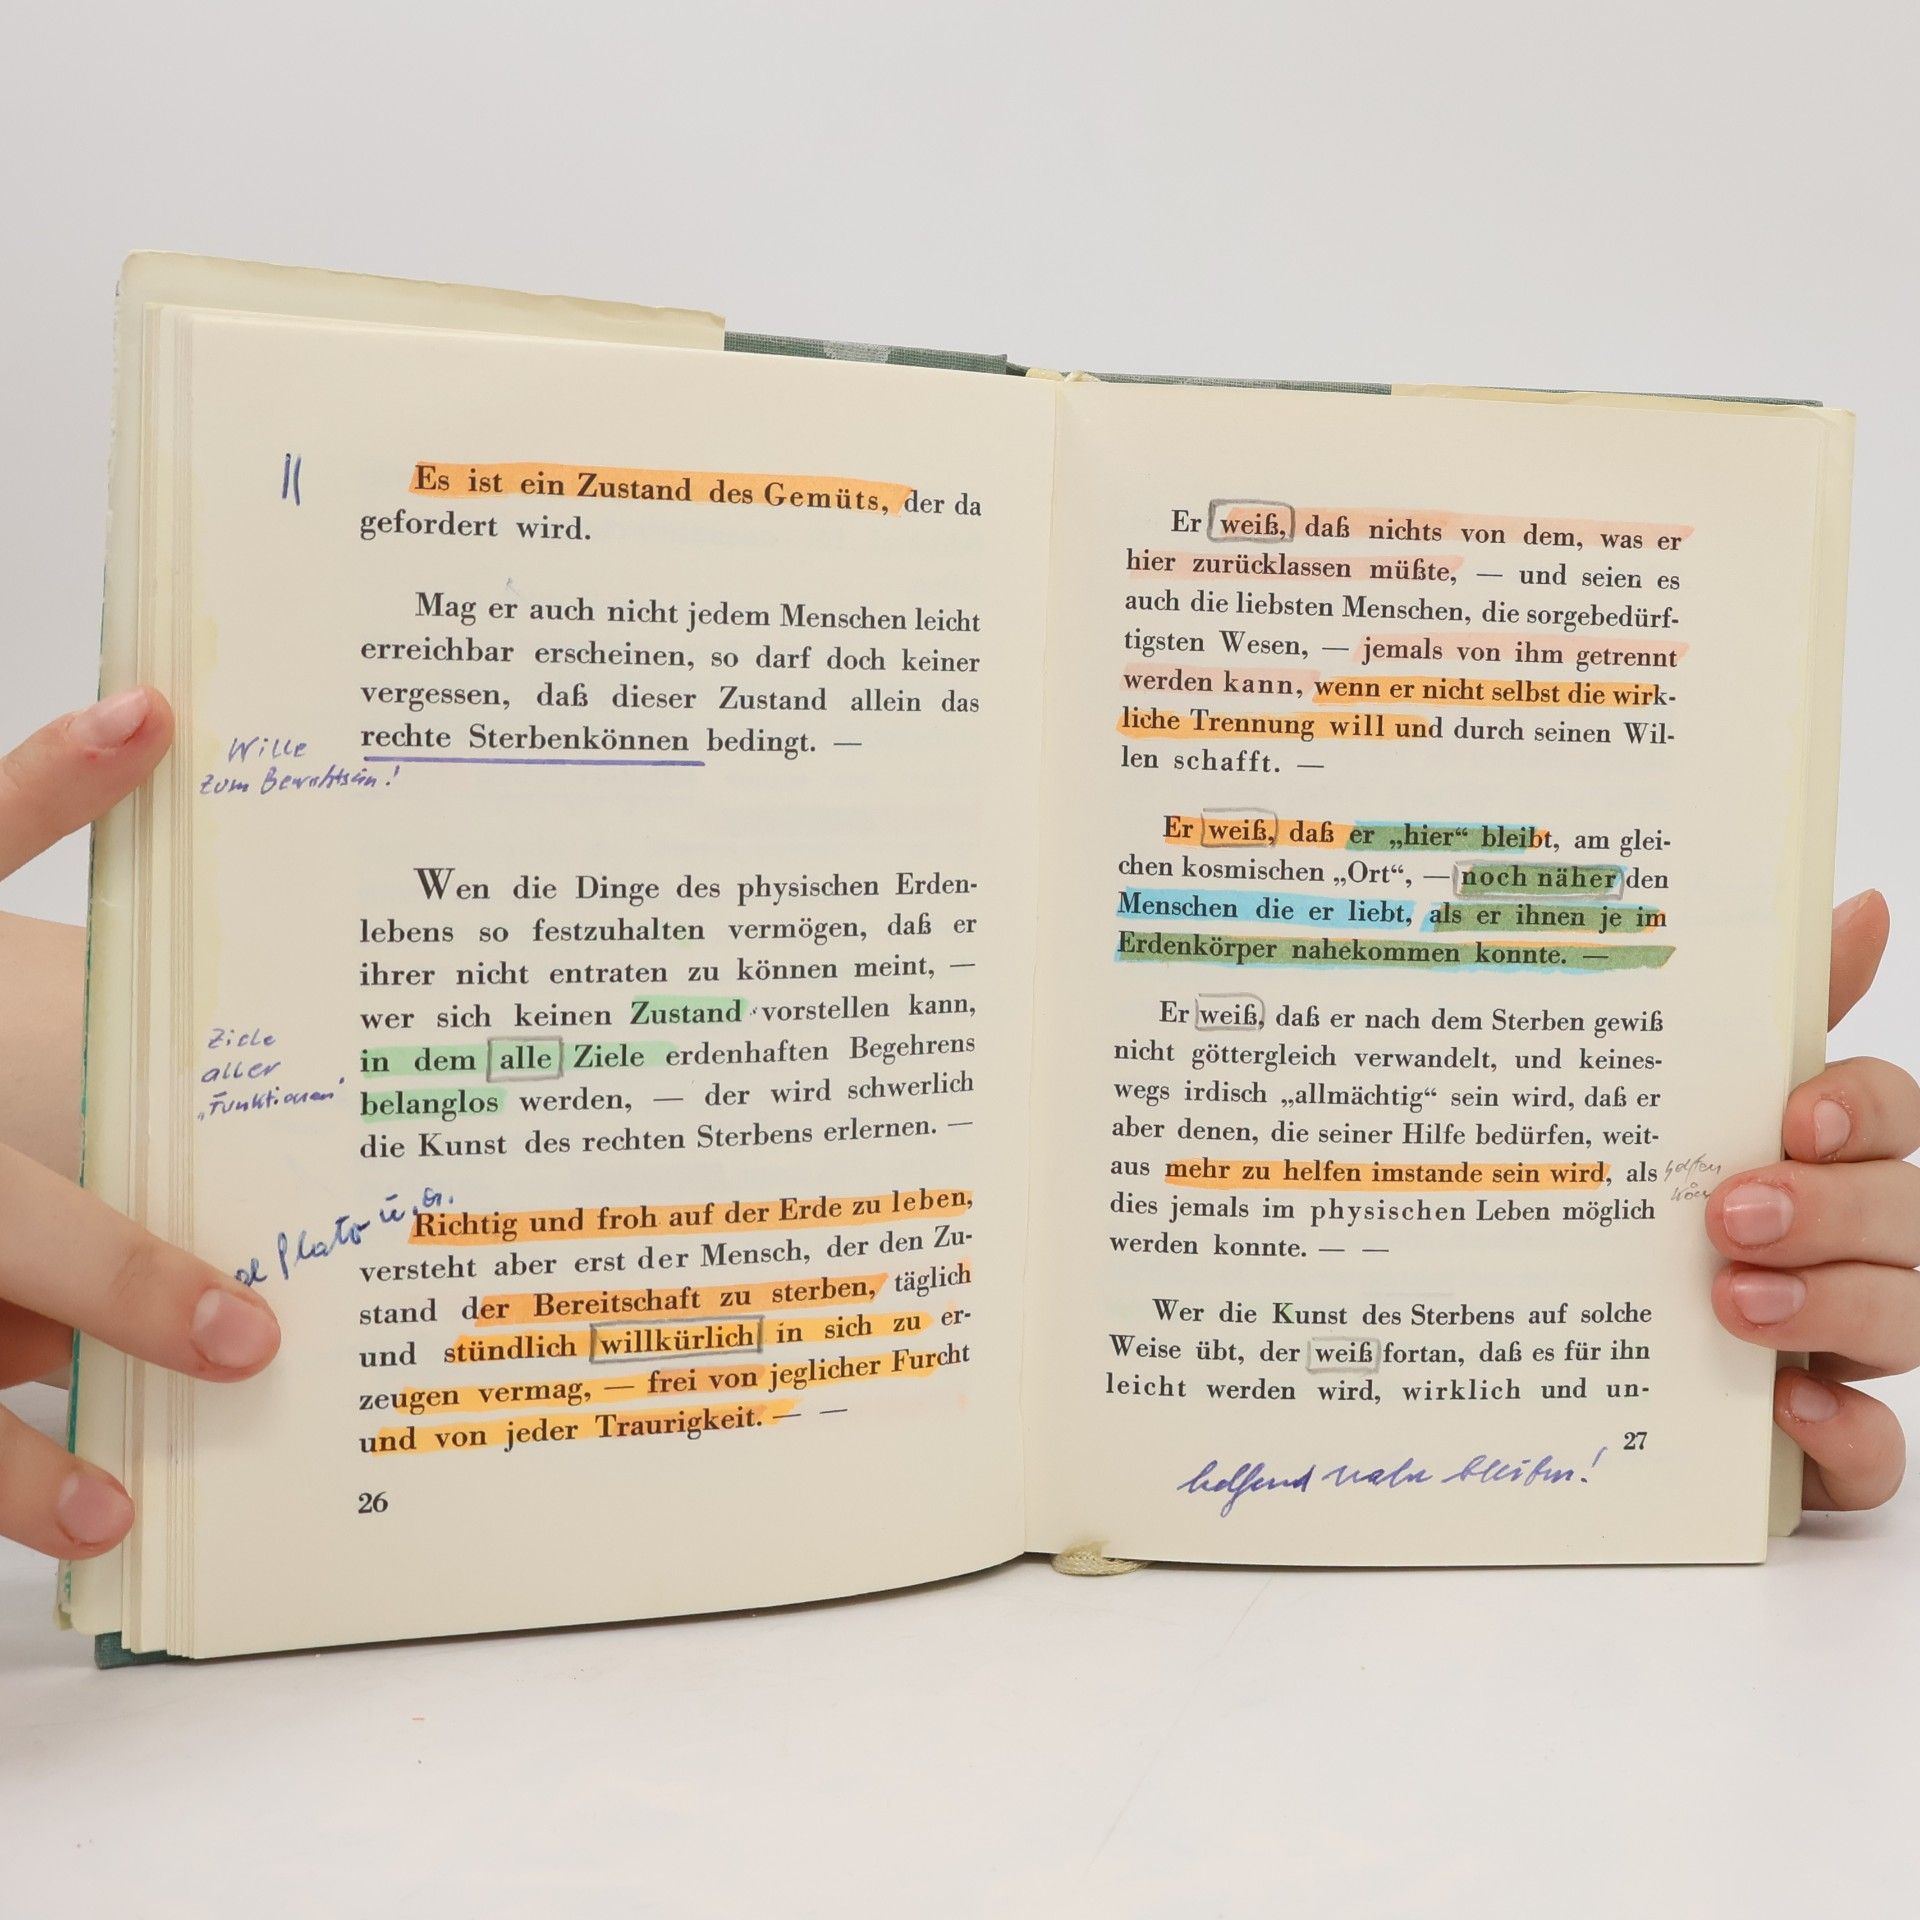 Es ist ein Zustand des Gemüts, der da
gefordert wird.
Mag er auch nicht jedem Menschen leicht
erreichbar erscheinen, so darf doch keiner
vergessen, daß dieser Zustand allein das
rechte Sterbenkönnen bedingt. —
Wille
zum Bewußtsein!
Wen die Dinge des physischen Erden-
lebens so festzuhalten vermögen, daß er
ihrer nicht entraten zu können meint, —
wer sich keinen Zustand vorstellen kann,
in dem alle Ziele erdenhaften Begehrens
belanglos werden, — der wird schwerlich
die Kunst des rechten Sterbens erlernen. —
Ziele
aller
„Funktionen"
Plato u. a.
Richtig und froh auf der Erde zu leben,
versteht aber erst der Mensch, der den Zu-
stand der Bereitschaft zu sterben, täglich
und stündlich willkürlich in sich zu er-
zeugen vermag, — frei von jeglicher Furcht
und von jeder Traurigkeit. — —
26
Er weiß, daß nichts von dem, was er
hier zurücklassen müßte, — und seien es
auch die liebsten Menschen, die sorgebedürf-
tigsten Wesen, — jemals von ihm getrennt
werden kann, wenn er nicht selbst die wirk-
liche Trennung will und durch seinen Wil-
len schafft. —
Er weiß, daß er „hier“ bleibt, am glei-
chen kosmischen „Ort“, — noch näher den
Menschen die er liebt, als er ihnen je im
Erdenkörper nahekommen konnte. —
Er weiß, daß er nach dem Sterben gewiß
nicht göttergleich verwandelt, und keines-
wegs irdisch „allmächtig“ sein wird, daß er
aber denen, die seiner Hilfe bedürfen, weit-
aus mehr zu helfen imstande sein wird, als
dies jemals im physischen Leben möglich
werden konnte. — —
Wer die Kunst des Sterbens auf solche
Weise übt, der weiß fortan, daß es für ihn
leicht werden wird, wirklich und un-
27
helfend nahe bleiben!